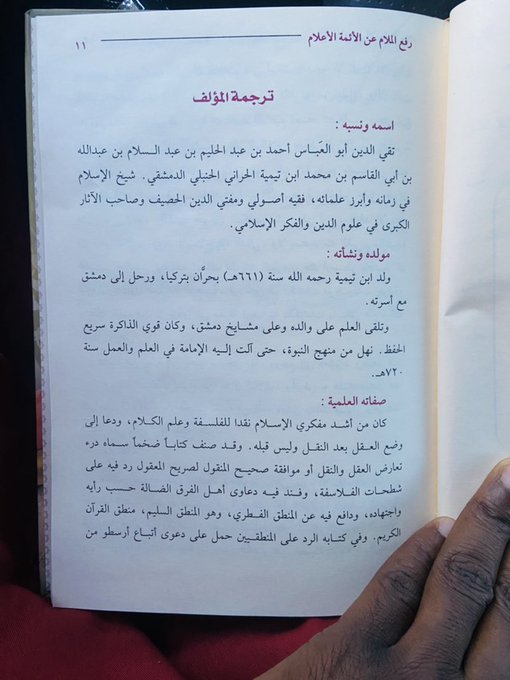 رفع الملام عن الأئمة الأعلام
١١
ترجمة المؤلف
اسمه ونسبه :
تقي الدين أبو العَبـاس أحمد بن عبد الحليم بن عبد الســلام بن عبدالله
بن أبي القاسم بن محمد ابن تيمية الحراني الحنبلي الدمشقي. شيخ الإسلام
في زمانه وأبرز علمائه، فقيه أصـولي ومفتي الدين الحصيف وصاحب الآثار
الكبرى في علوم الدين والفكر الإسلامي.
مولده ونشأته :
ولد ابن تيمية رحمه الله سنة (٦٦١هـ) بحرَّان بتركيا، ورحل إلى دمشق
مع أسرته.
وتلقى العلم على والده وعلى مشـايخ دمشق، وكان قوي الذاكرة سريع
الحفظ. نهل من منهج النبوة، حتى آلت إليـه الإمامة في العلم والعمل سنة
٧٢٠هـ.
صفاته العلمية :
كان من أشـد مفكري الإسلام نقدا للفلسفة وعلم الكلام، ودعا إلى
وضع العـقل بعد النقل وليس قبله. وقـد صنف كتابـاً ضخمـاً سماه درء
تعارض العقل والنقل أو موافقة صحيـح المنقول لصريح المعقول رد فيه على
شطحات الفـلاسفة، وفـند فيـه دعاوى أهـل الفرق الضـالة حسب رأيه
واجتهاده، ودافع فيه عن المنطق الفـطري، وهو المنطق السليم، منطق القرآن
الكريم. وفي كتـابه الرد على المنطقـيين حمل على دعوى أتبـاع أرسطو من